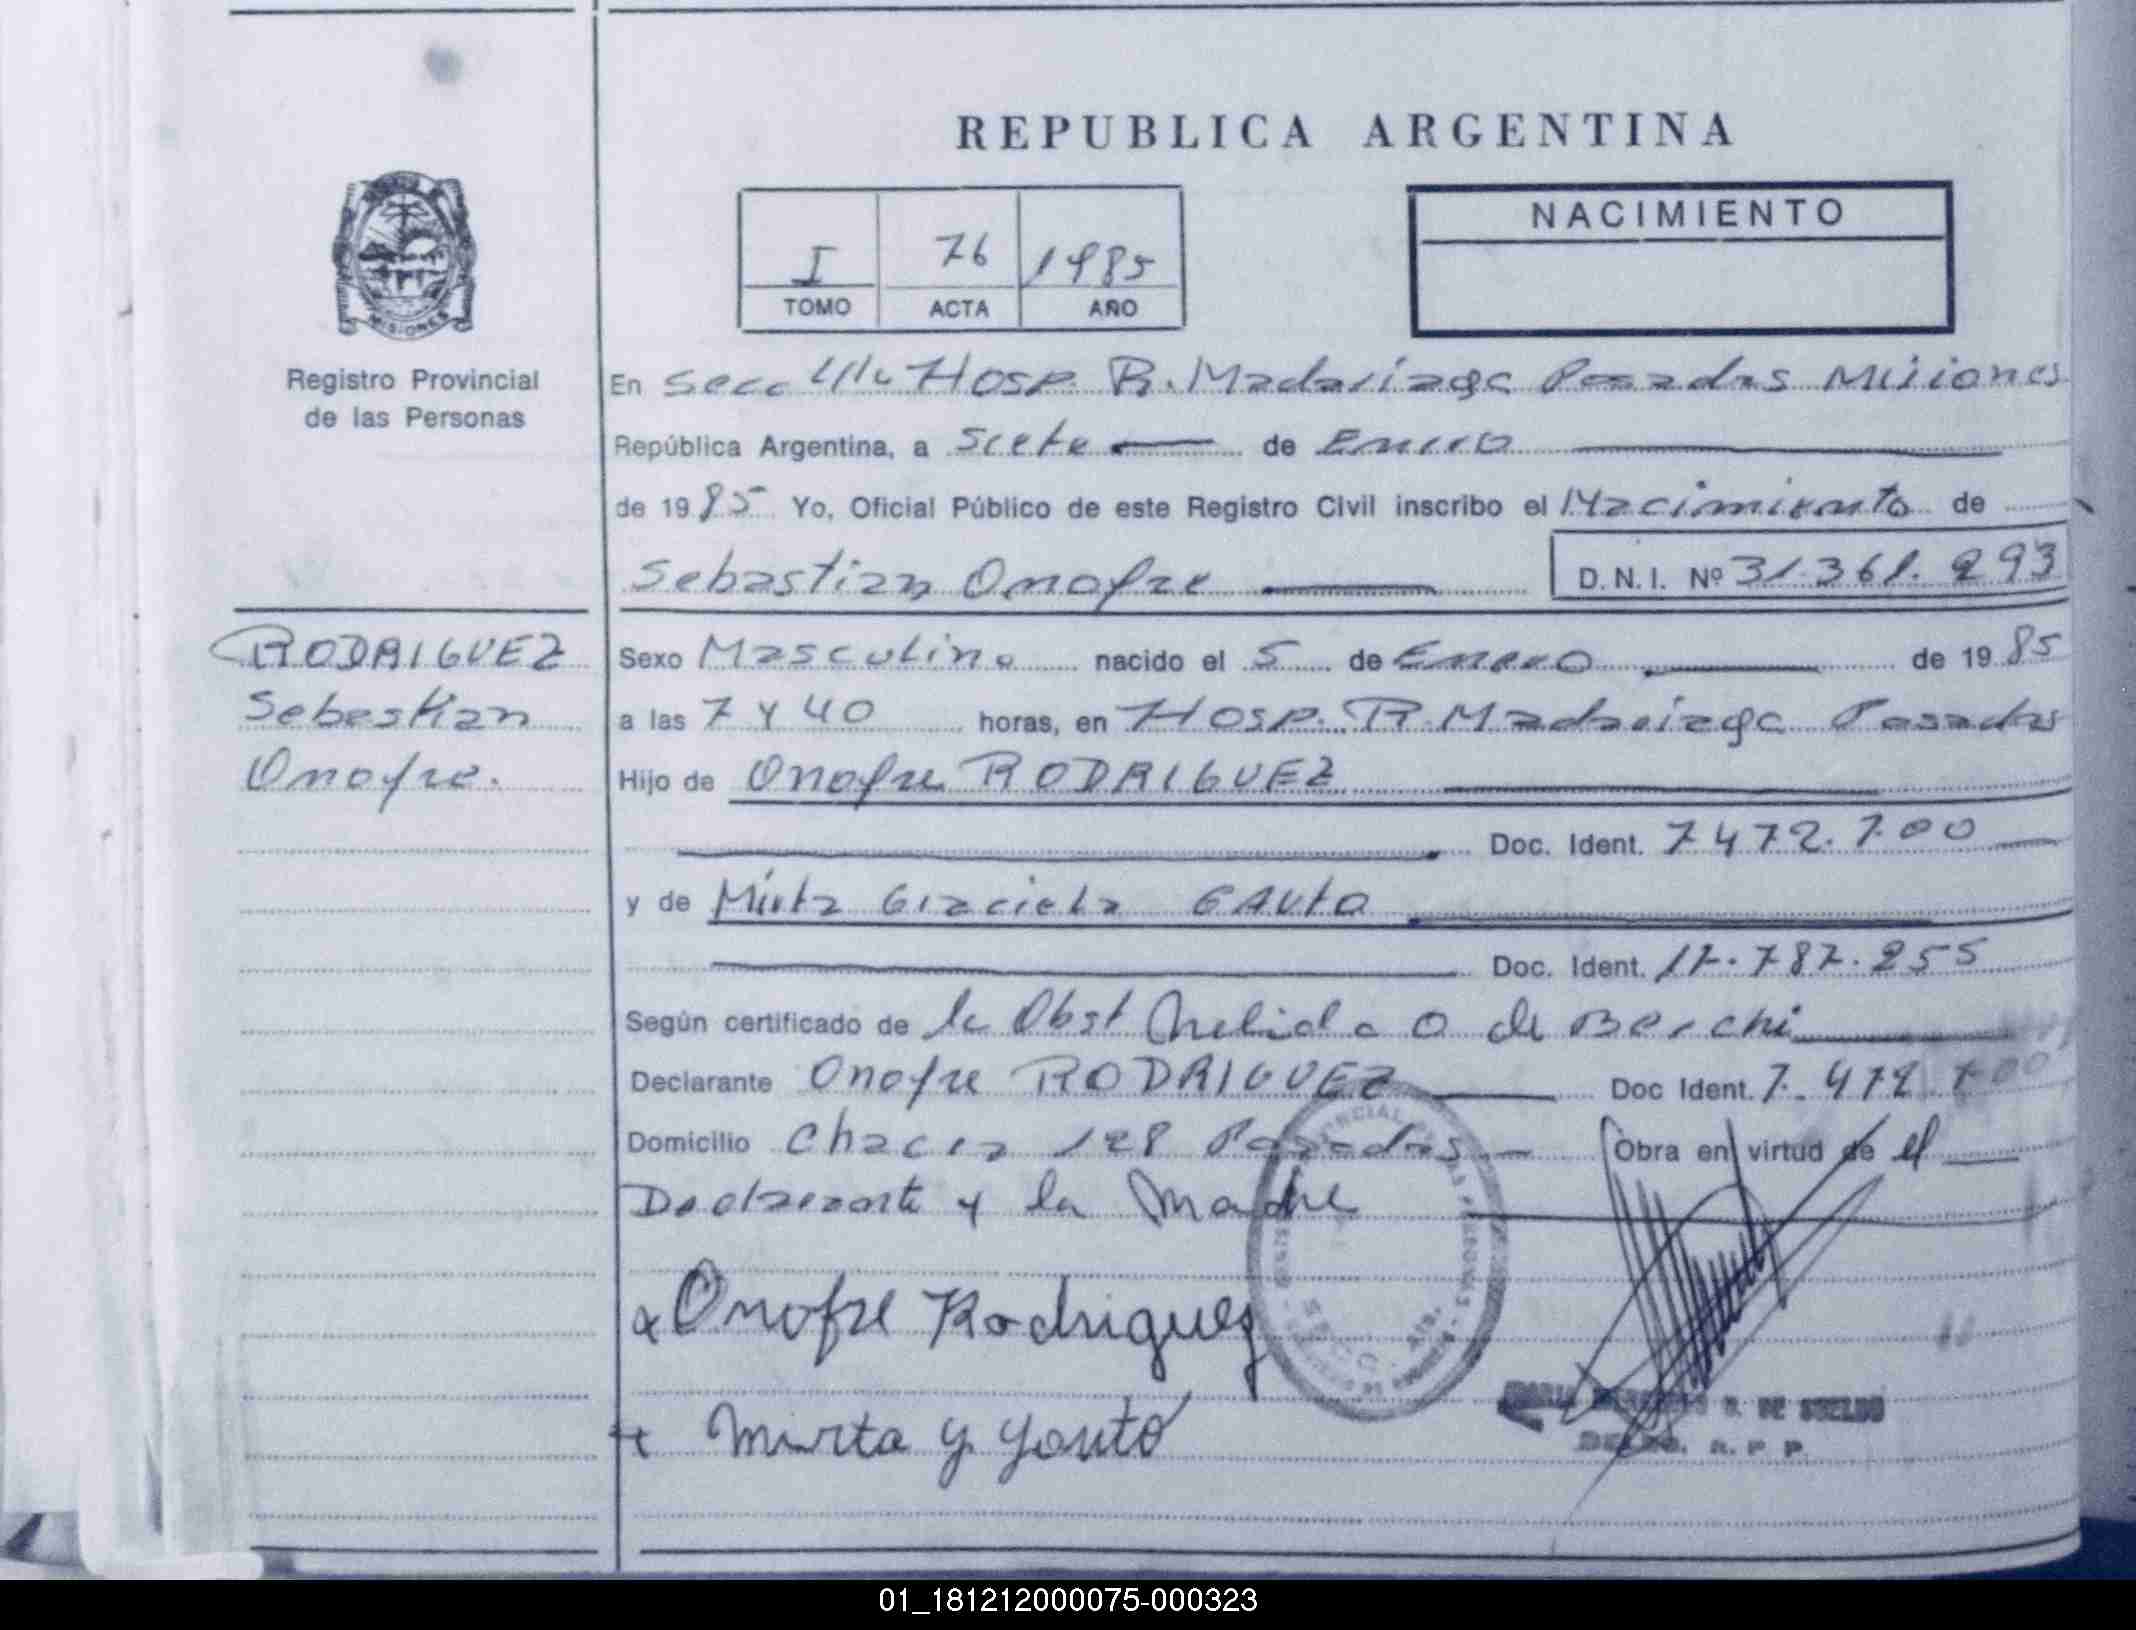 REPUBLICA ARGENTINA
I 76 1985
TOMO ACTA AÑO
NACIMIENTO
MISIONES
Registro Provincial
de las Personas
En Secc Hosp. R. Madariaga Posadas Misiones
República Argentina, a Siete de Enero
de 1985 Yo, Oficial Público de este Registro Civil inscribo el Nacimiento de
Sebastian Onofre D.N.I. Nº 31.361.293
RODRIGUEZ
Sebastian
Onofre.
Sexo Masculino nacido el 5 de Enero de 1985
a las 7 y 40 horas, en Hosp. R. Madariaga Posadas
Hijo de Onofre RODRIGUEZ
Doc. Ident. 7472.700
y de Mirta Graciela GAUTO
Doc. Ident. 17.787.255
Según certificado de la Obst Nelida O de Berchi
Declarante Onofre RODRIGUEZ Doc Ident. 7.472.700
Domicilio Chacra 128 Posadas Obra en virtud de el
Declarante y la Madre
Onofre Rodriguez
Mirta G Gauto
DE SUELDO
R. P. P.
01_181212000075-000323